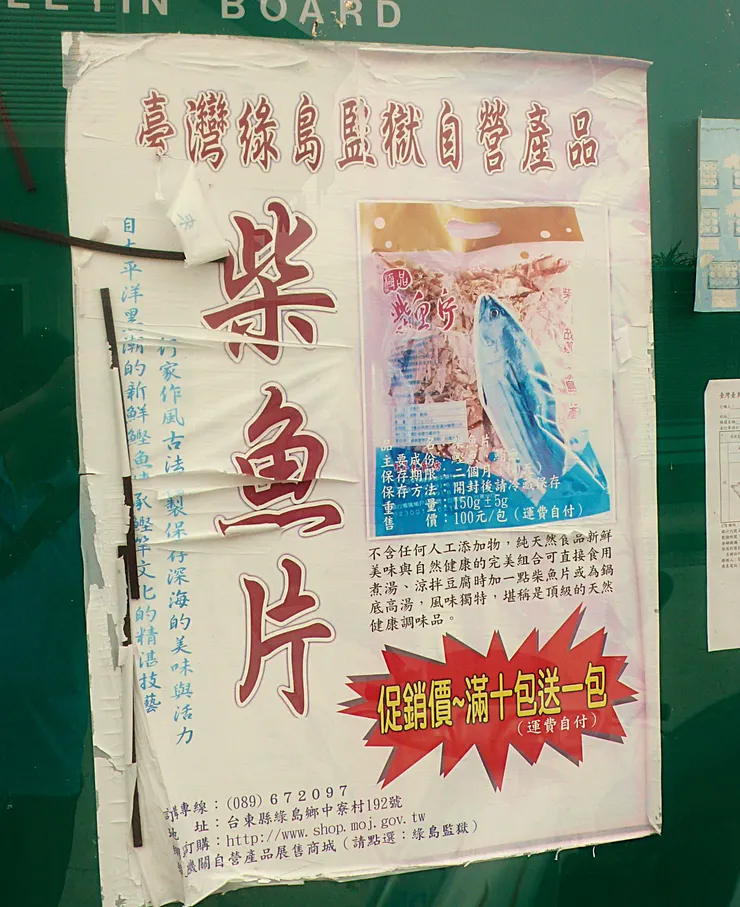 BOARD
臺灣綠島監獄自營產品
柴魚片
自太平洋黑潮的新鮮鰹魚 承鰹竿文化的精湛技藝
行家作風古法 製保存深海的美味與活力
柴魚片
保存期限：二個月
保存方法：開封後請冷藏保存
重量：150g±5g
售價：100元/包(運費自付)
不含任何人工添加物，純天然食品新鮮
美味與自然健康的完美組合可直接食用
煮湯、涼拌豆腐時加一點柴魚片或為鍋
底高湯，風味獨特，堪稱是頂級的天然
健康調味品。
促銷價~滿十包送一包
(運費自付)
專線：(089)672097
址：台東縣綠島鄉中寮村192號
訂購：http://www.shop.moj.gov.tw
機關自營產品展售商城(請點選：綠島監獄)